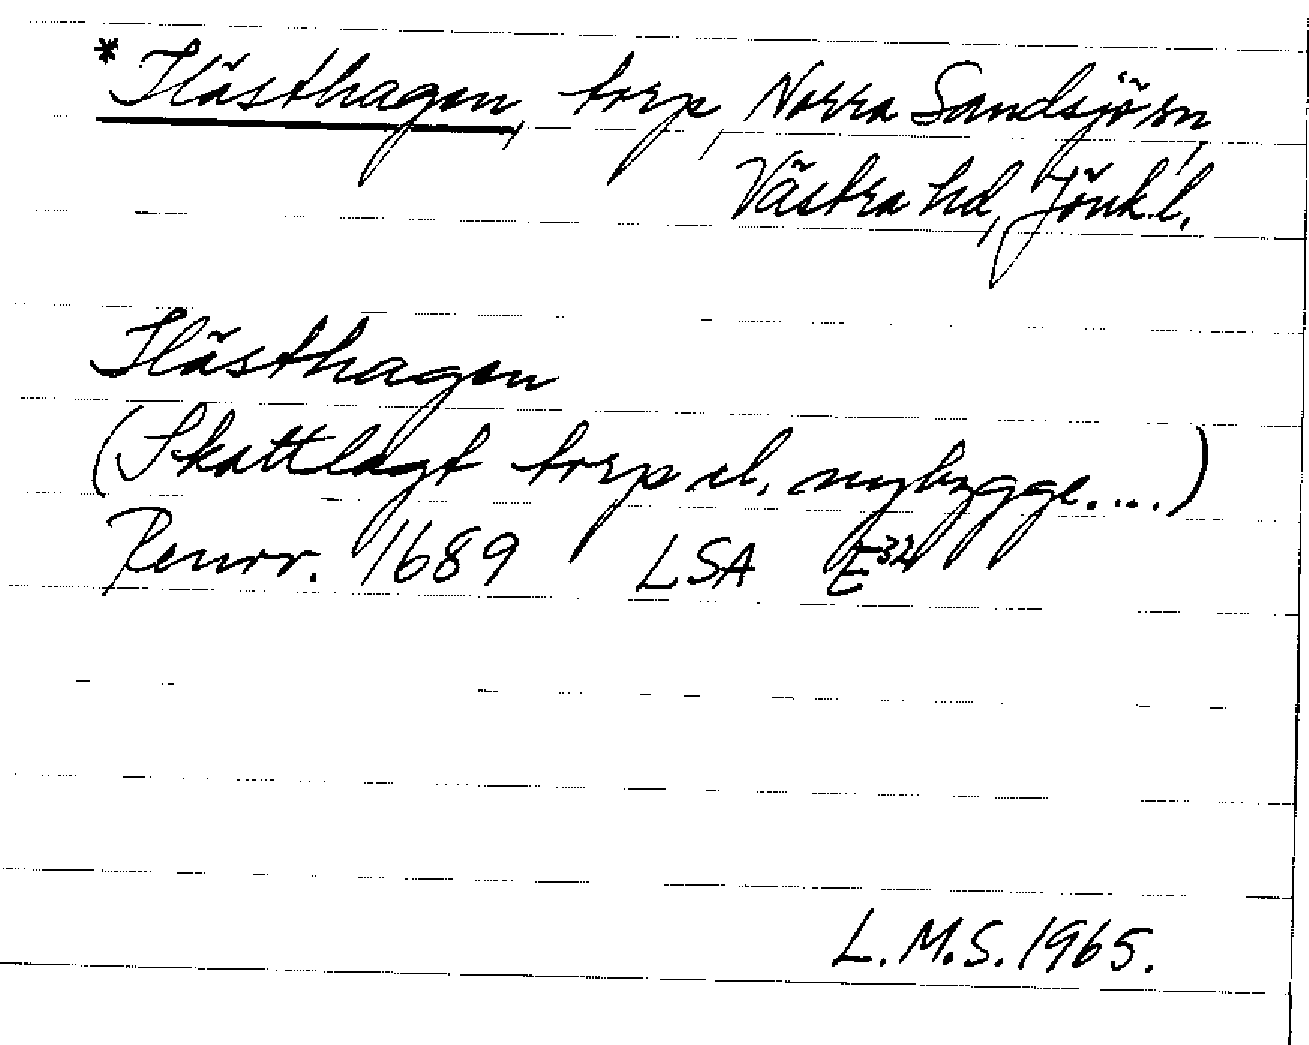 * Hästhagen, torp, Norra Sandsjö sn,
Västra hd, Jönk.l.
Hästhagen
(Skattlagt torp el. nybygge....)
Renov. 1689 LSA E32
L.M.S. 1965.